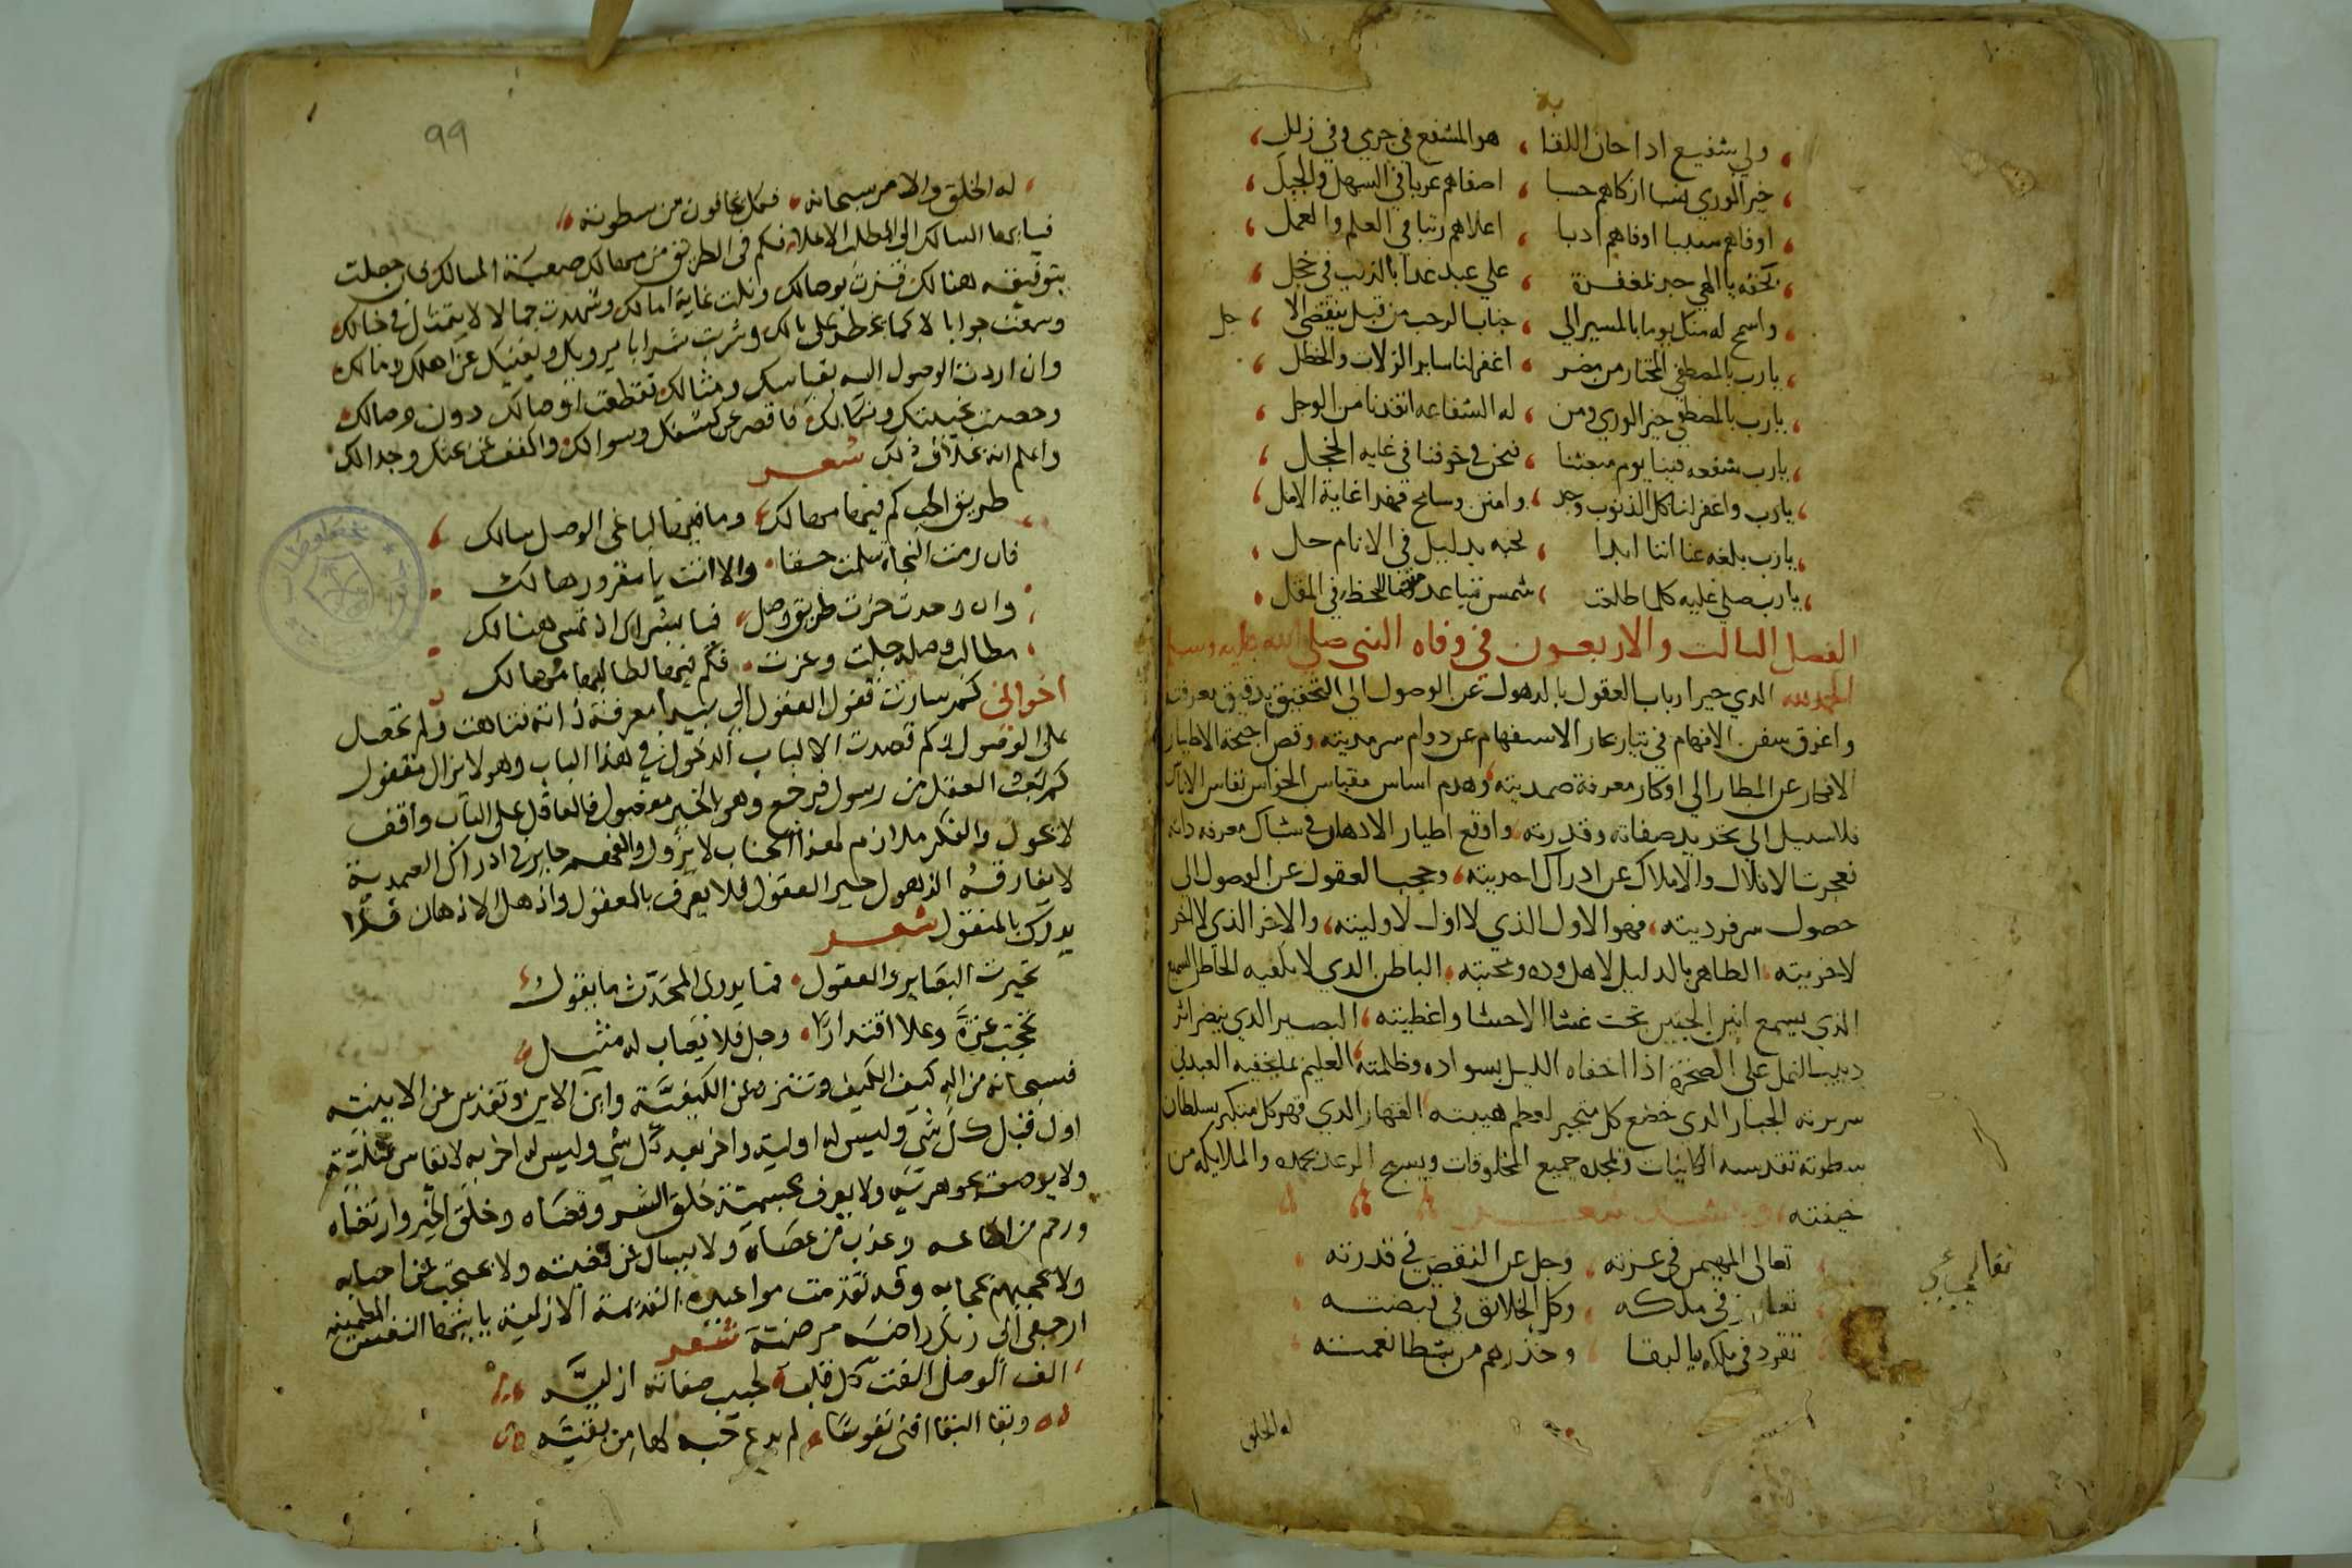 ولي شفيع اذا حان اللقا ، هو المشفع في جرمي وفي زللي
خير الوري نسبا ازكاهم حسبا ، اصفاهم عربا في السهل والجبل
اوفاهم ادبا ، اعلاهم رتبا في العلم والعمل
بحقه يا الهي جد بمغفرة ، علي عبد غدا بالذنب في خجل
واسمح له منك يوما بالمسير الي ، جناب الرحب من قبل ينقضي الاجل
يارب بالمصطفي المختار من مضر ، اغفر لنا ساير الزلات والخطل
يارب بالمصطفي خير الوري ومن ، له الشفاعه انقدنا من الوجل
يارب شفعه فينا يوم مبعثنا ، فنحن في خوفنا في غايه الخجل
يارب واغفر لنا كل الذنوب وجد ، وامنن وسامح فهدا غاية الامل
يارب بلغه عنا اننا ابدا ، بحبه في الانام
يارب صلي عليه كلما طلعت ، شمس
الفصل الثالت والاربعون في وفاه النبي صلي الله عليه وسلم
الحمد لله الدي حير ارباب العقول بالدهول عن الوصول الي التحقيق بدقيق معرفته
واغرق سفن الافهام في تيار بحار الاستفهام عن دوام سرمديته وقص اجنحة الاطيار
الافكار عن المطار الي اوكار معرفة صمديته وهدم اساس مقياس الحواس
فلا سبيل الي تحديد صفاته وقدرته واوقع اطيار الادهان في شباك معرفه داته
فعجزت الافلاك والاملاك عن ادراك احديته ، وحجب العقول عن الوصول الي
حصول سر فرديته ، فهو الاول الذي لا اول لاوليته ، والاخر الذي لا اخر
لاخريته ، الظاهر بالدليل لاهل وده ومحبته ، الباطن الدي لا يلقيه الخاطر السميع
الذي يسمع انين الجنين تحت غشا الاحشا واغطيته ، البصير الدي ينظر اثر
دبيب النمل علي الصخرة اذا اخفاه الليل بسواده وظلمته العليم بما يخفيه العبد في
سريرته الجبار الدي خضع كل متجبر لعظم هيبته القهار الدي قهر كل متكبر بسلطان
سطوته تقدسه الكاينات وتمجده جميع المخلوقات ويسبح الرعد بحمده والملايكه من
خيفته شعر
تعالي المهيمن في عزته ، وجل عن النقص في قدرته
تعالي
في ملكه ، وكل الخلائق في قبضته
تفرد في ملكه بالبقا ، وحذرهم من سطا نعمته
له الخلق
99
له الخلق والامر سبحانه ، فكل يخافون من سطوته
فيا ايها السالك الي المطلب الاعلا فكم في الطريق من مهالك صعبة المسالك فان حصلت
بتوفيقه هنالك فزت بوصالك ونلت غاية امالك وشهدت جمالا لا يتمثل في خيالك
وسمعت جوابا لا كما يخطر علي بالك وشربت شرابا يرويك ويغنيك عن اهلك ومالك
وان اردت الوصول اليه بقياسك ومثالك تقطعت اوصالك دون وصالك
فاقصر عن كشفك وسوالك واكفف عن بحثك وجدالك
واعلم انه بخلاف ذلك شعر
طريق الحب كم فيها مهالك ، وما فيها لباغي الوصل سالك
فان رمت النجاة سلمت حسفا ، والا انت يا مغرور هالك
وان وحدت حزت طريق وصل ، فيا بشراك اذ تمسي هنالك
مطالب وصله جلت وعزت ، فكم فيها لطالبها مهالك
اخواني كم سارت قفول العقول الي بيدا معرفة ذاته فتاهت ولم تحصل
علي الوصول وكم قصدت الالباب الدخول في هذا الباب وهو لا يزال مقفول
كم بعث العقل من رسول فرجع وهو بالخبر معضول فالعاقل علي الباب واقف
لا يحول والفكر ملازم لهذا الجناب لا يزول والفهم حاير في ادراك الصمدية
لا يفارقه الذهول حير العقول فلا يعرف بالمعقول واذهل الاذهان فلا
يدرك بالمنقول شعر
تحيرت البصاير والعقول ، فما يدري المحدث ما يقول
تحجب عزة وعلا اقتدارا ، وجل فلا يصاب له مثيل
فسبحانه من اله كيف الكيف وتنزه عن الكيفية واين الاين وتقدس عن الاينيه
اول قبل كل شي وليس له اوليه واخر بعد كل شي وليس له اخريه لا يقاس بمثلية
ولا يوصف بجوهريه ولا يعرف بجسمية خلق الشر وقضاه وخلق الخير وارتضاه
ورحم من اطاعه وعذب من عصاه ولا يسال عن قضيته ولا يحتجب عن احبابه
ولا يحجبهم بحجابه وقد تقدمت مواعيده القديمة الازلية يا ايتها النفس المطمينه
ارجعي الي ربك راضيه مرضية شعر
الف الوصل الفت كل قلب ، لحبيب صفاته ازليه
وبقا البقا افني نفوسا ، لم يدع حبه لها من بقيه